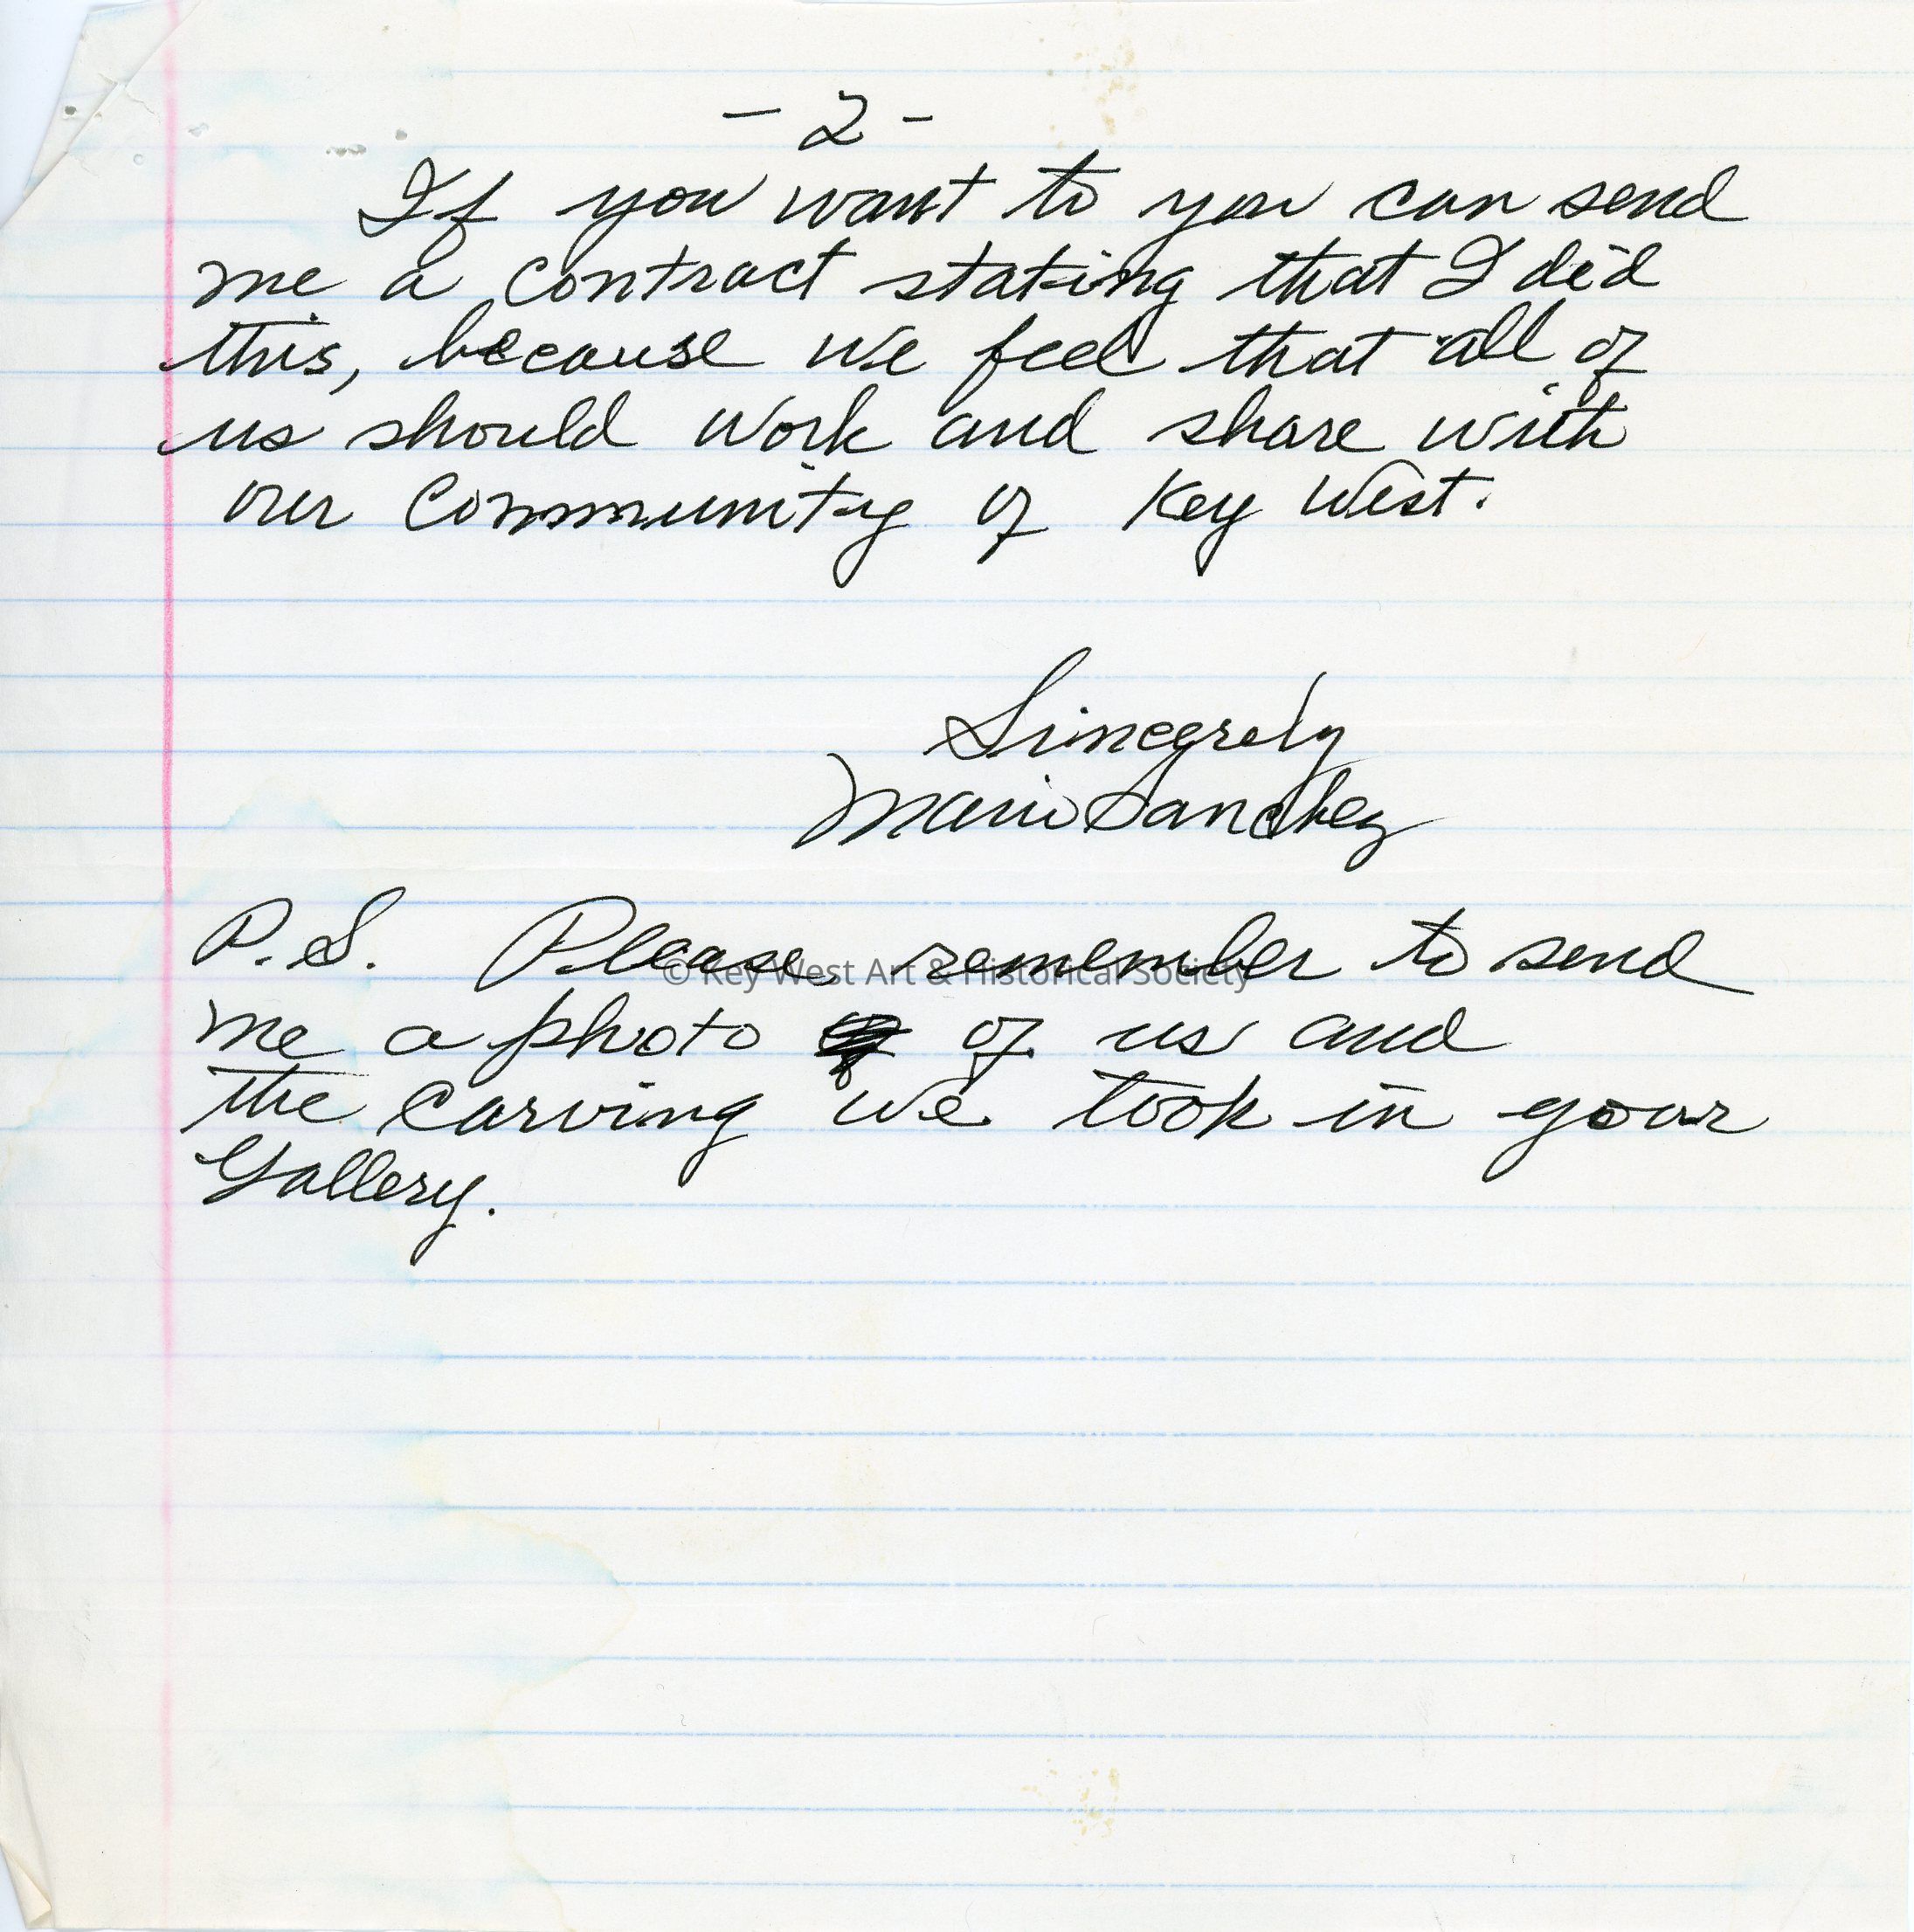 - 2 -
If you want to you can send
me a contract stating that I did
this, because we feel that all of
us should work and share with
our Community of Key West.
Sincerely
Mario Sanchez
P.S. Please remember to send
© Key West Art & Historical Society
me a photo of us and
the carving we took in your
Gallery.